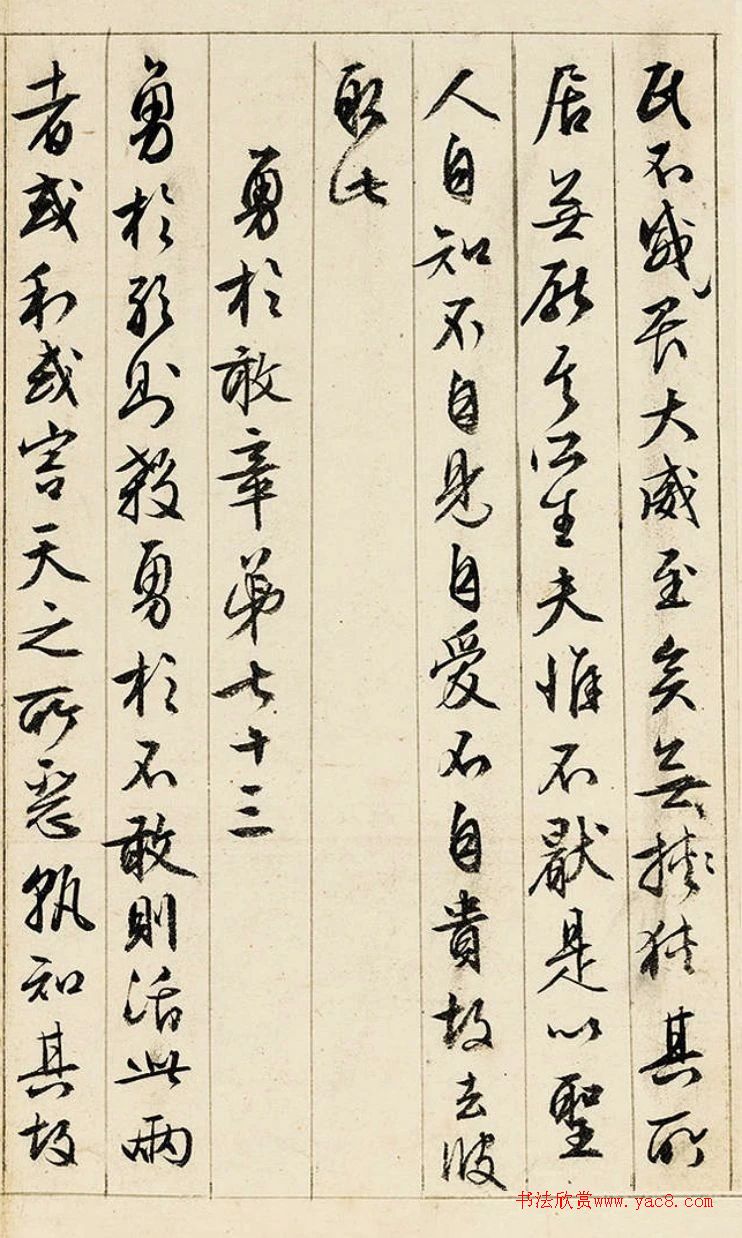 民不威畏大威至矣無狹其所
居無厭其所生夫惟不厭是以聖
人自知不自見自愛不自貴故去彼
取此
勇於敢章第七十三
勇於敢則殺勇於不敢則活此兩
者或利或害天之所惡孰知其故
书法欣赏www.yac8.com